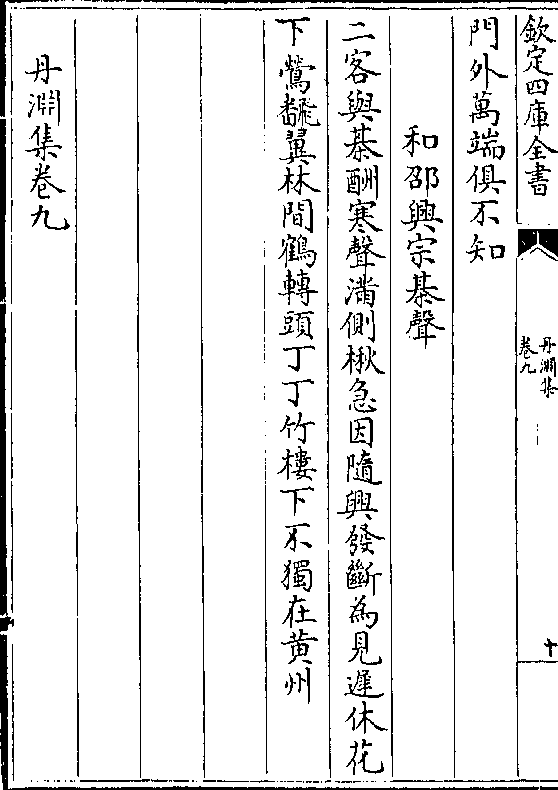 欽定四庫全書
丹淵集
卷九
十
門外萬端俱不知
和邵興宗棊聲
二客與棊酬寒聲滿側楸急因隨興發斷為見遲休花
下鶯飜翼林間鶴轉頭丁丁竹樓下不獨在黄州
丹淵集卷九